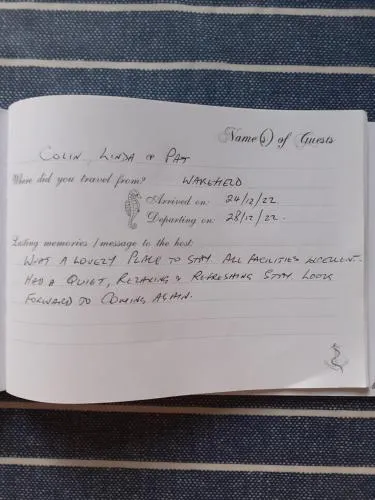 Name(s) of Guests
COLIN, LINDA & PAT
Where did you travel from? WAKEFIELD
Arrived on: 24/12/22
Departing on: 28/12/22.
Lasting memories / message to the host:
WHAT A LOVELY PLACE TO STAY. ALL FACILITIES EXCELLENT.
HAD A QUIET, RELAXING & REFRESHING STAY. LOOK
FORWARD TO COMING AGAIN.